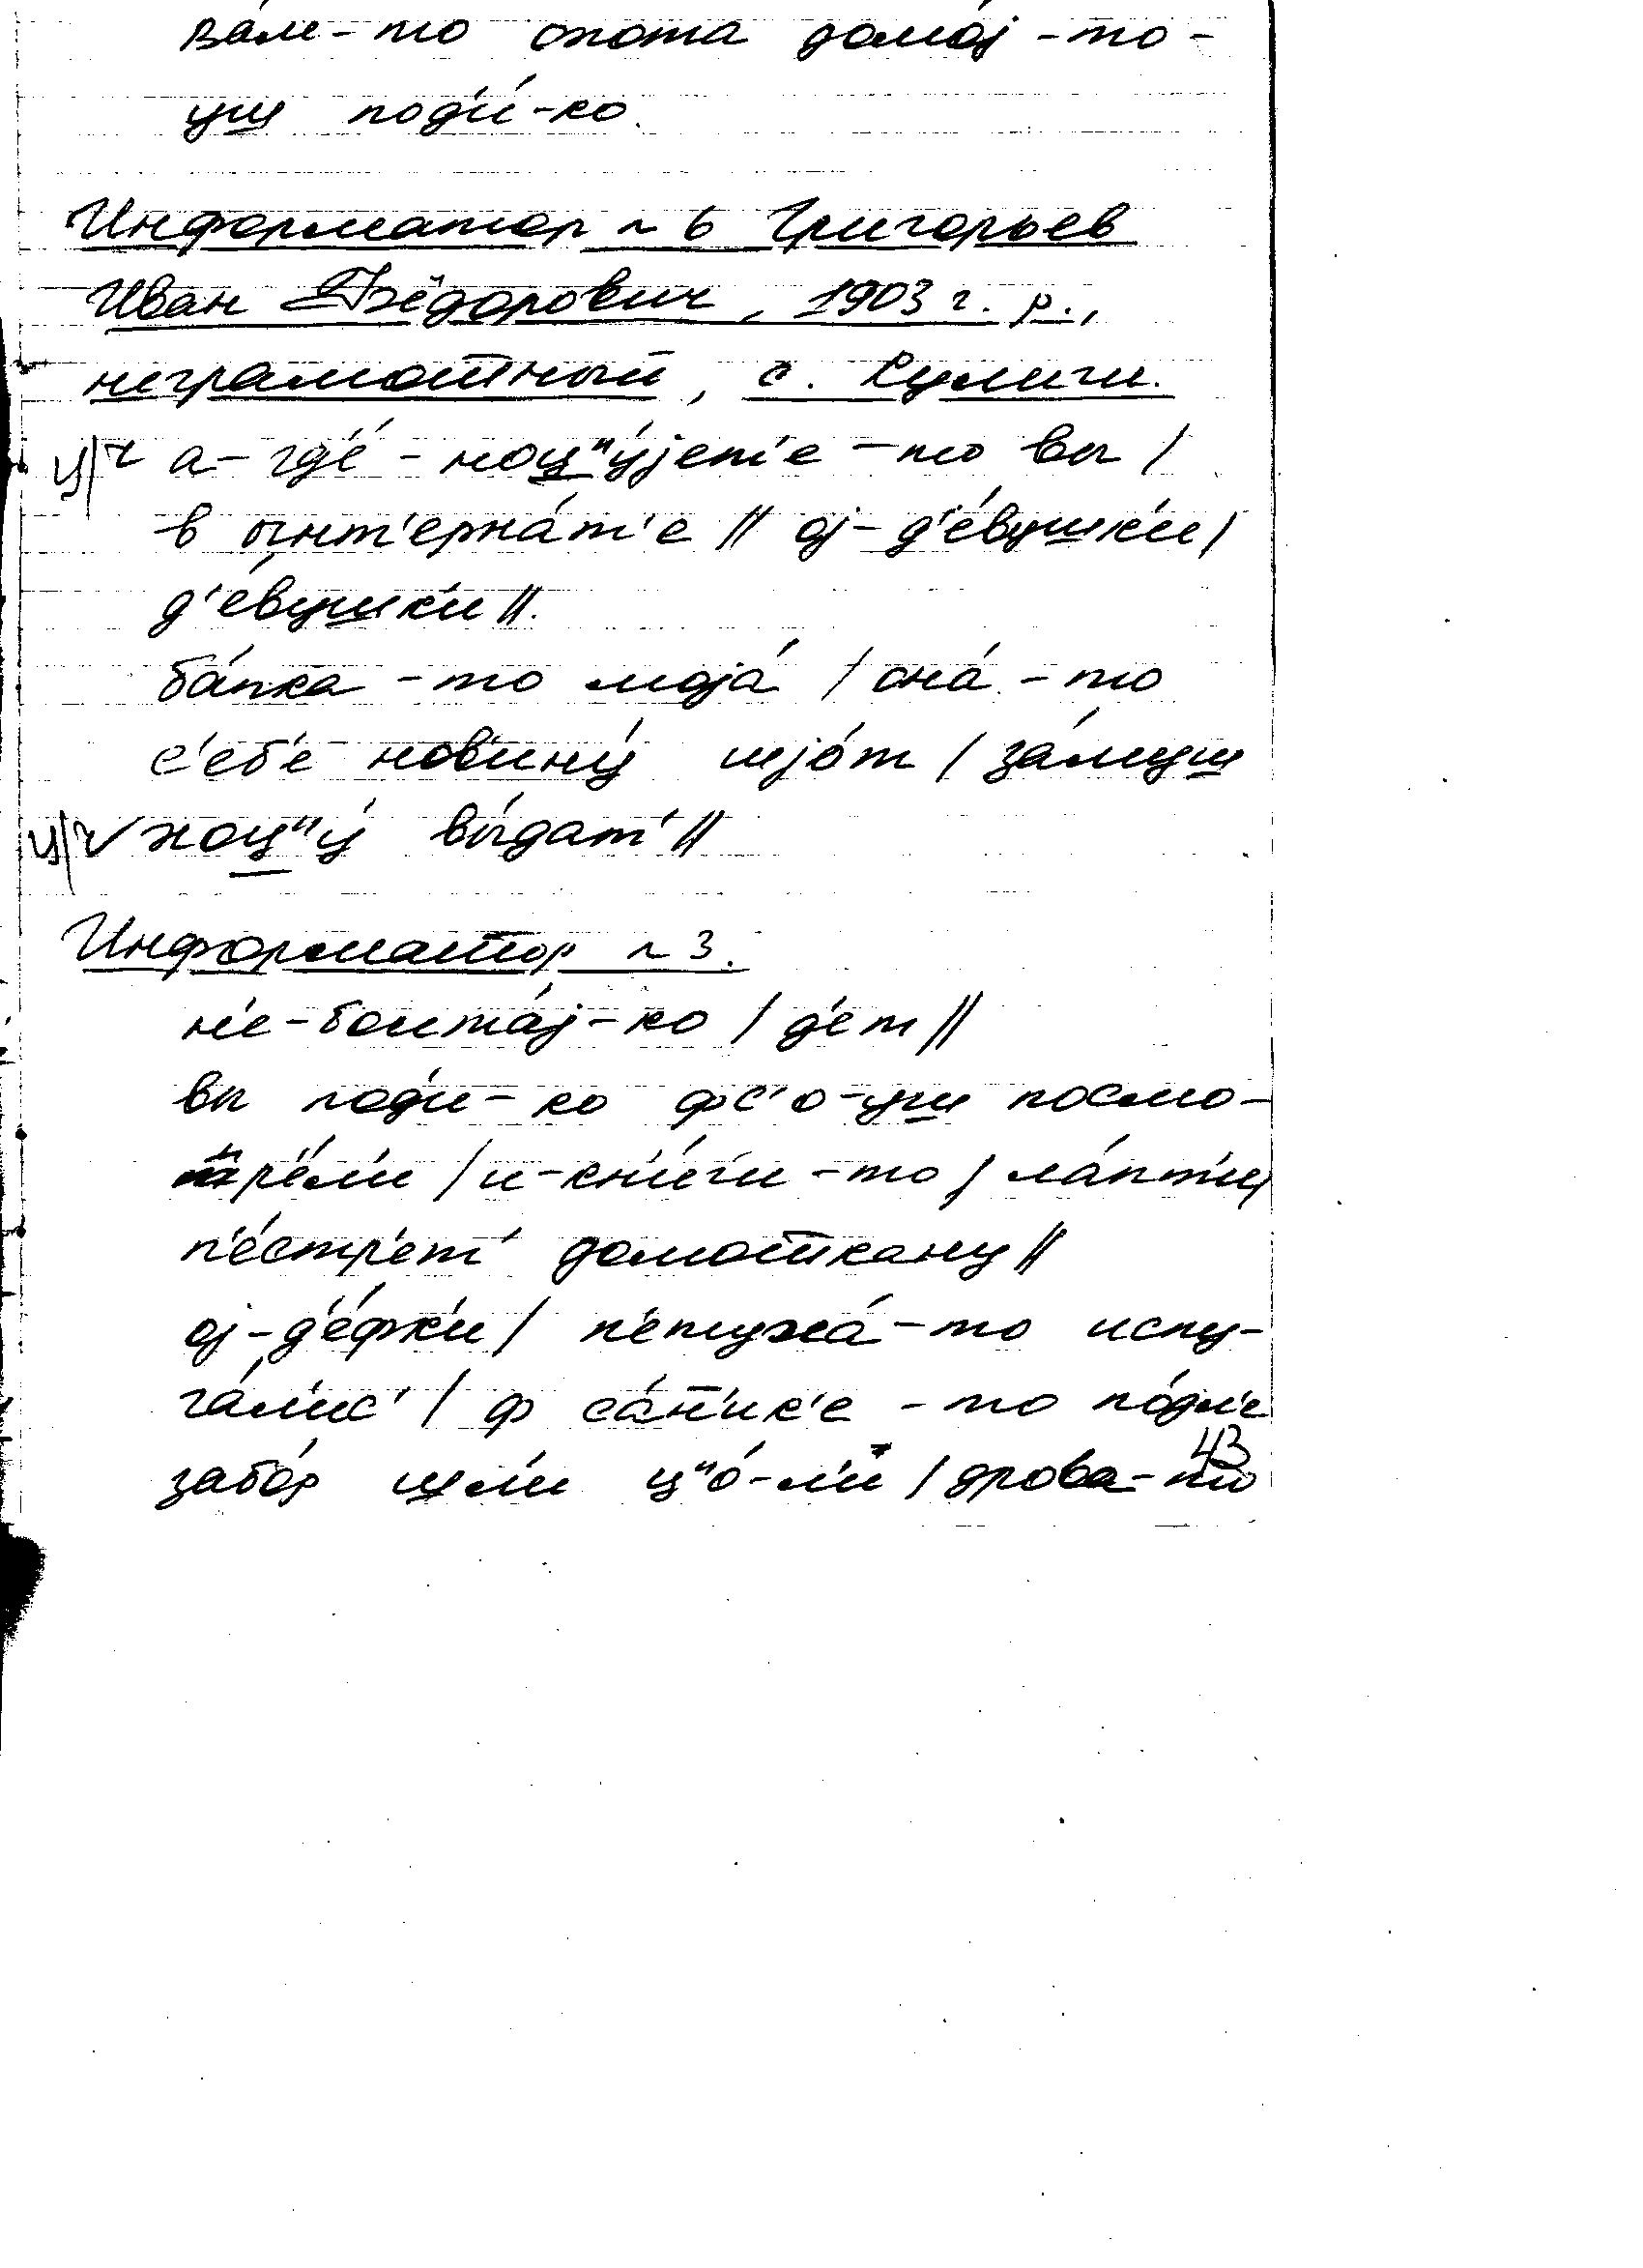 ва́м-то охота домо́j-то-
уш под'и́-ко.
Информатор № 6 Григорьев
Иван Фёдорович, 1903 г. р.,
неграмотный, с. Кулиги.
ц/ч а-гд'е́-ноц"у́jет'е-то вы /
в ынт'ерна́т'е // оj-д'е́вушк'и /
д'е́вушк'и //.
ба́пка-то моjа́ / она́-то
с'еб'е новину́ шjо́т / за́муш
ц/ч хоц"у́ вы́дат' //
Информатор № 3.
н'е-болта́j-ко / д'ет //
вы под'и-ко фс'о-уш посмо-
тр'е́л'и / и-кн'и́г'и-то / ла́пт'и /
п'естр'ет' домоткану //
оj-д'е́фк'и / п'етуха́-то испу-
га́л'ис' / ф са́н'ик'е-то по́дл'е
забо́р шл'и ц"о́-л'и / дрова-то
43